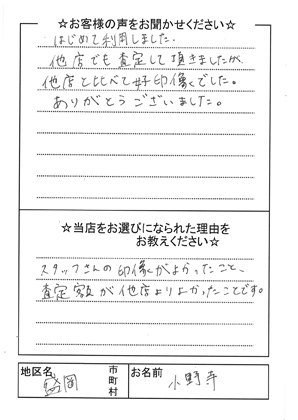 ☆お客様の声をお聞かせください☆
はじめて利用しました.
他店でも査定して頂きましたが、
他店と比べて好印像でした。
ありがとうございました。
☆当店をお選びになられた理由を
お教えください☆
スタッフさんの印像がよかったこと、
査定額が他店よりよかったことです。
地区名 盛岡 市町村 お名前 小野寺